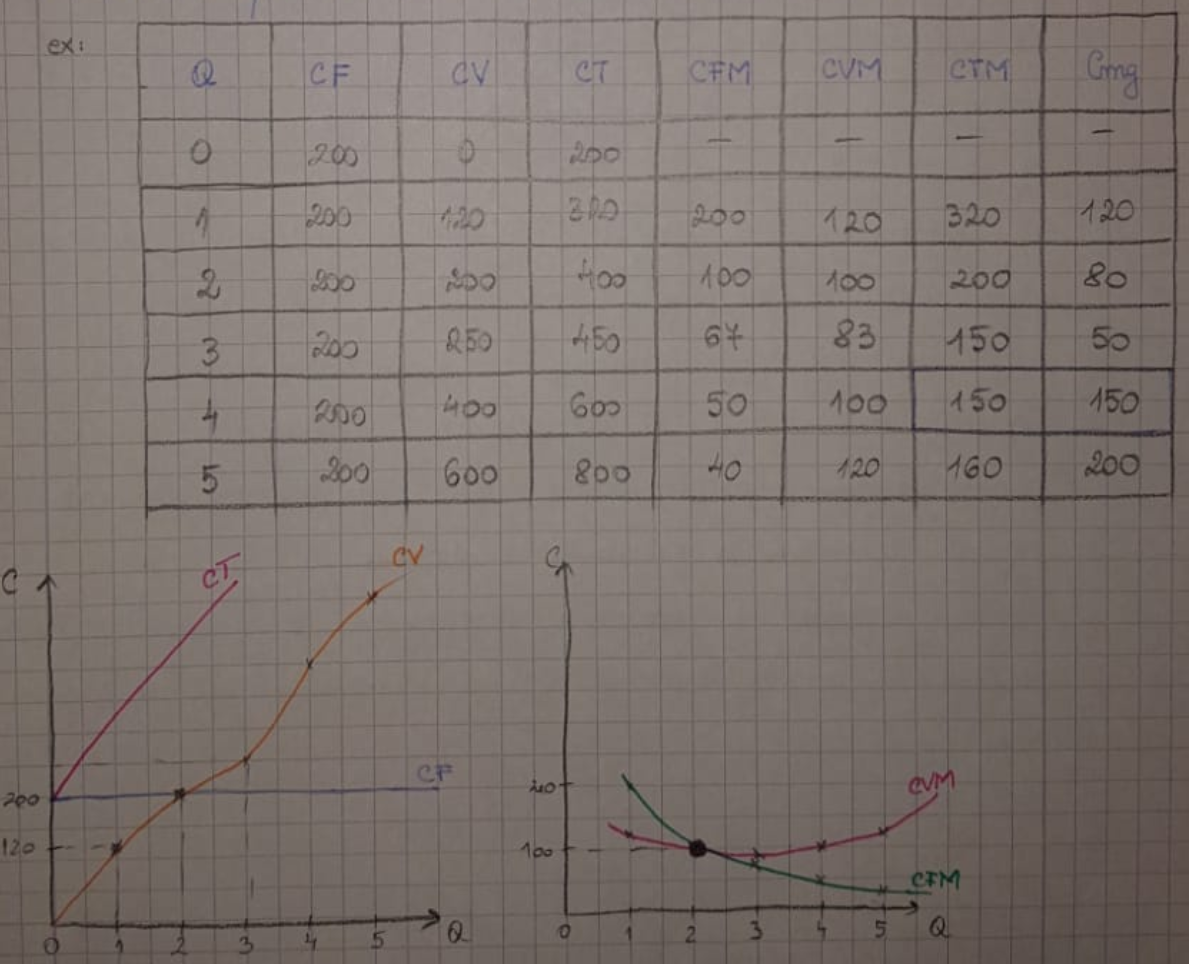 ex:
Q CF CV CT CFM CVM CTM Cmg
0 200 0 200 — — — —
1 200 120 320 200 120 320 120
2 200 200 400 100 100 200 80
3 200 250 450 67 83 150 50
4 200 400 600 50 100 150 150
5 200 600 800 40 120 160 200
C CT CV
CF
200
120
0 1 2 3 4 5 Q
C
CVM
100
CFM
0 1 2 3 4 5 Q